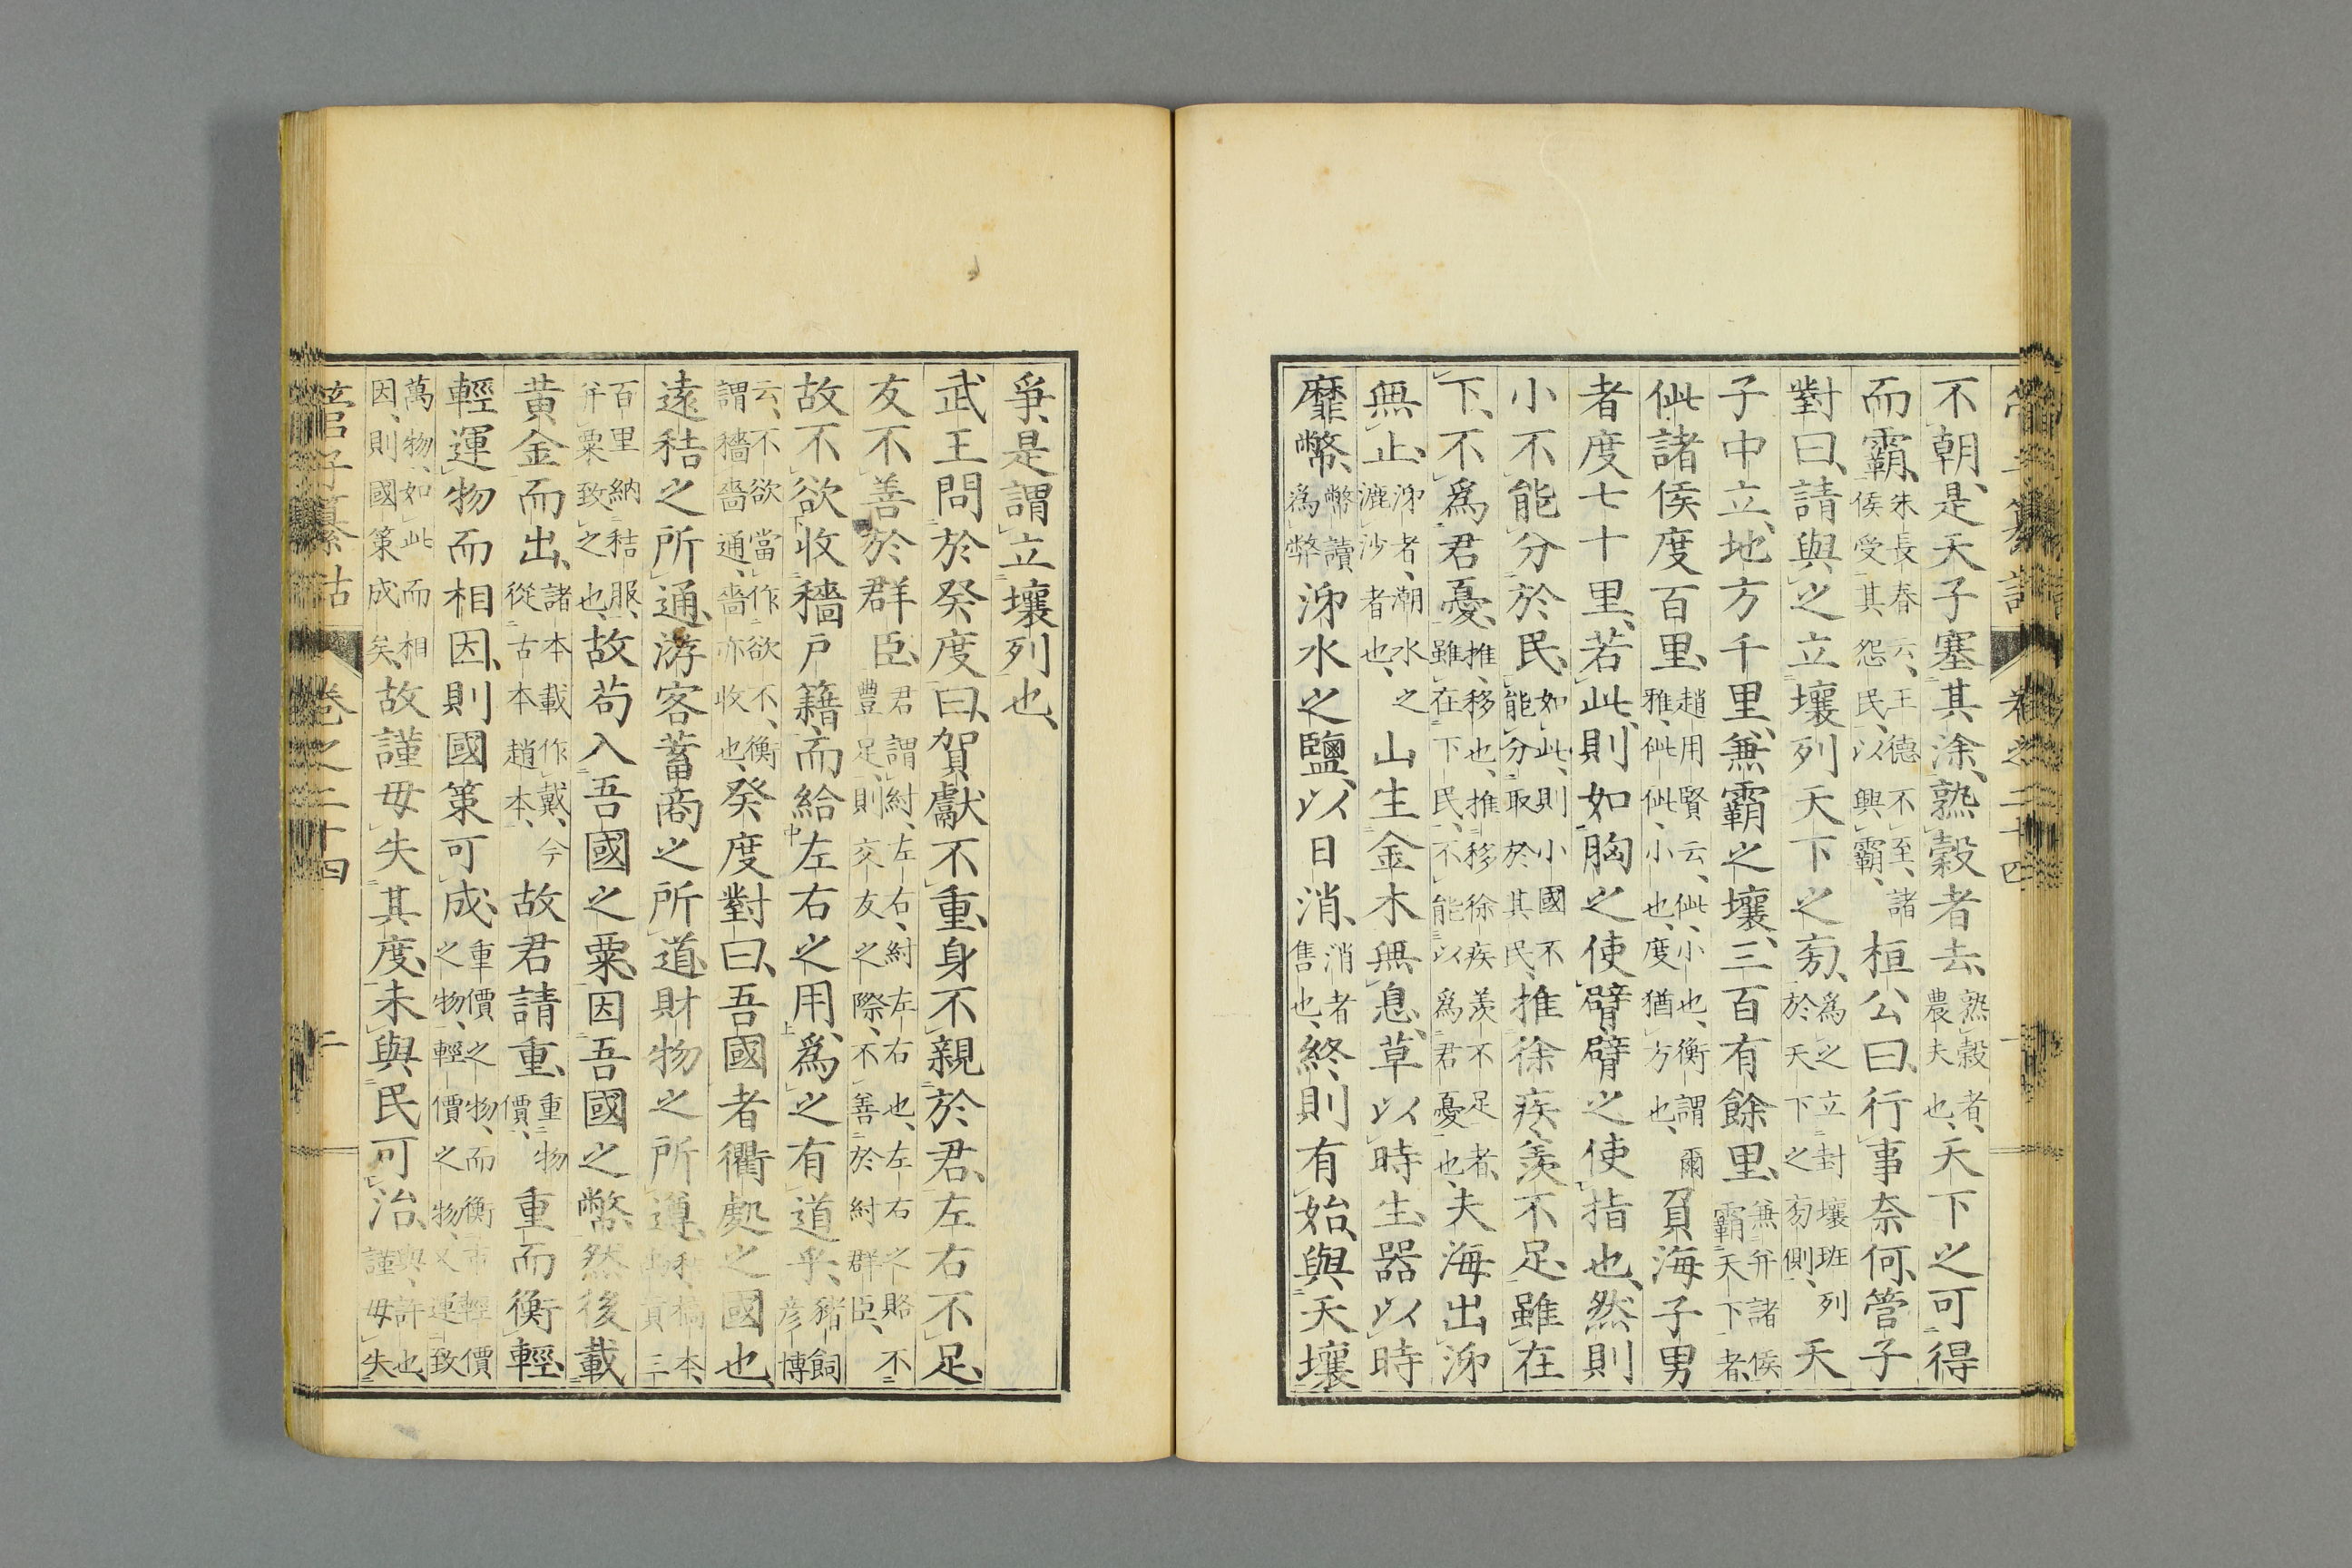 不朝、是天子塞其涂、熟穀者去、熟穀者、農夫也、天下之可得
而霸、朱長春云、王德不至、諸侯受其怨民、以興霸、桓公曰、行事奈何、管子
對曰、請與之立壤列天下之㫄、爲之立封壤班列於天下之㫄側、天
子中立、地方千里、兼霸之壤、三百有餘里、兼并諸侯霸天下者、
仳諸侯度百里、趙用賢云、仳、小也、衡謂爾雅、仳仳、小也、度猶方也、負海子男
者度七十里、若此、則如胸之使臂、臂之使指也、然則
小不能分於民、如此、則小國不能分取於其民、推徐疾羨不足、雖在
下、不爲君憂、推、移也、推移徐疾羨不足者、雖在下民、不能以爲君憂也、夫海出沛
無止、沛者、潮水之漉沙者也、山生金木無息、草以時生、器以時
靡幣、幣讀爲弊沛水之鹽、以日消、消者售也、終則有始、與天壤
爭、是謂立壤列也、
武王問於癸度曰、賀獻不重、身不親於君、左右不足、
友不善於群臣、君謂紂、左右、紂左右也、左右之賂不豐足、則交友之際、不善於紂群臣、
故不欲收穡戶籍而給左右之用、爲之有道乎、豬飼彦博
云、不欲當作欲不、衡謂穡嗇通、嗇亦收也、癸度對曰、吾國者衢處之國也、
遠秸之所通、游客蓄商之所道、財物之所遵、貢三
百里納秸服、并粟致之也、故苟入吾國之粟、因吾國之幣、然後載
黃金而出、諸本載作戴、今從古本趙本、故君請重、重物價、重而衡輕、
輕運物而相因、則國策可成、重價之物、而衡市輕價之物、輕價之物、又運致
萬物、如此而相因、則國策成矣、故謹毋失其度、未與民可治、與、許也、謹毋失
管子纂詁 卷之二十四 一
管子纂詁 卷之二十四 二